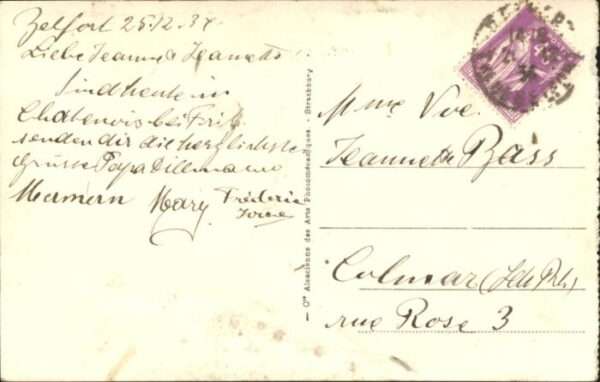 Belfort 25.12.34
Liebe Jeanne & Jeanette
Sind heute in
Chatenois bei Fritz
senden dir die herzlichste
Grüsse Papa Dillmann
Mary Frédéric
Cie Alsacienne des Arts Photomécaniques, Strasbourg
Mme Vve.
Jeannette Bass
Colmar (Hte Rh.)
rue Rose 3